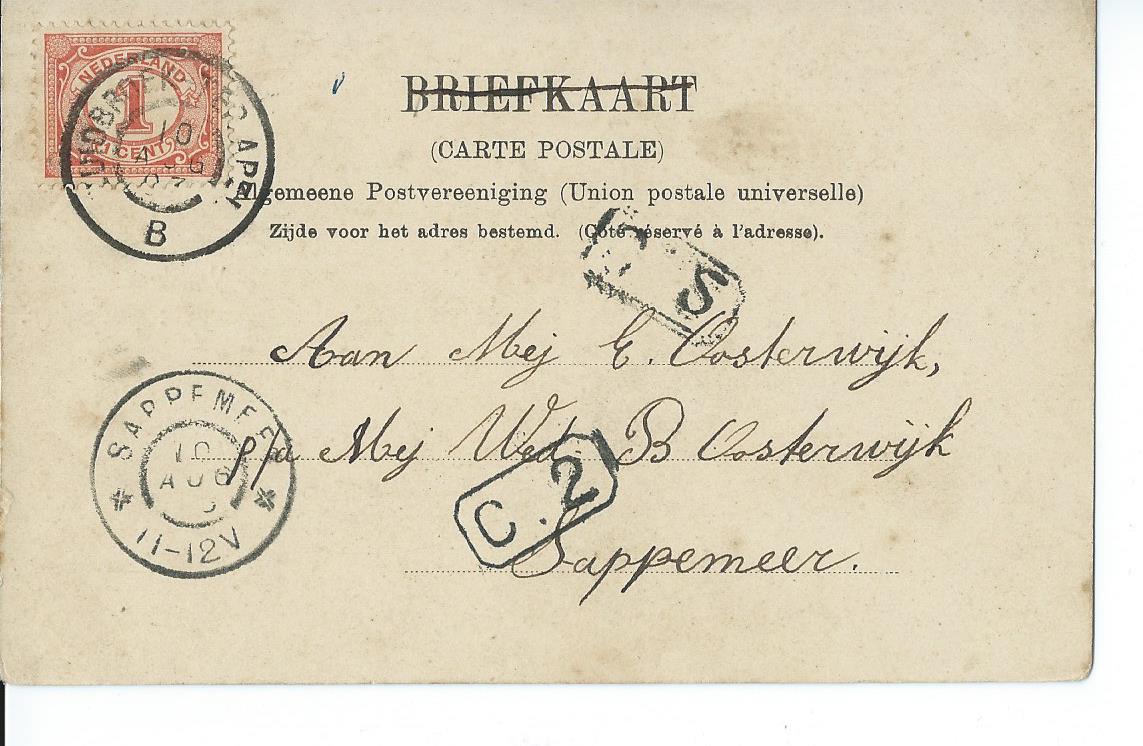 NEDERLAND
1
CENT
10
B
BRIEFKAART
(CARTE POSTALE)
Algemeene Postvereeniging (Union postale universelle)
Zijde voor het adres bestemd. (Côté réservé à l'adresse).
S
Aan Mej E. Oosterwijk,
p/a Mej Wed B Oosterwijk
Sappemeer.
SAPPEMEER
10
AUG
11-12V
C. 2